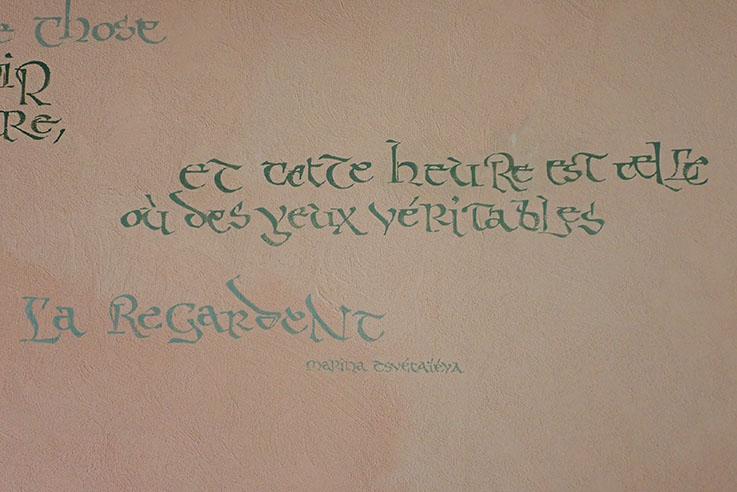 chose
RE,
et cette heure est celle
où des yeux véritables
la regardent
marina tsvétaïéva